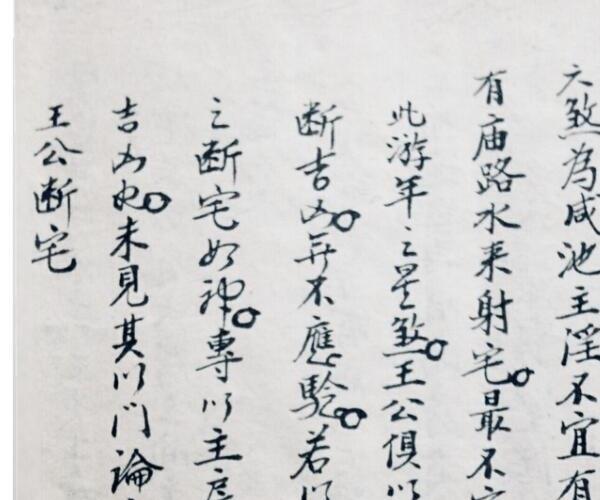 六煞為咸池主淫不宜有
有庙路水来射宅。最不宜
此游年之星煞。王公俱以
断吉凶。无不應驗。若以
之断宅如神。專以主房
吉凶也。未見其以门論
王公断宅